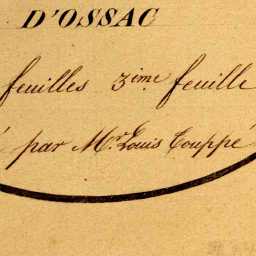 D'OSSAC
feuilles 3ème feuille
par Mr. Louis Couppé